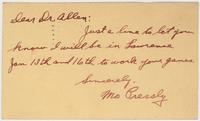 Dear Dr. Allen:
Just a line to let you
know I will be in Lawrence
Jan 13th and 16th to work your games
Sincerely,
Mo Pressly